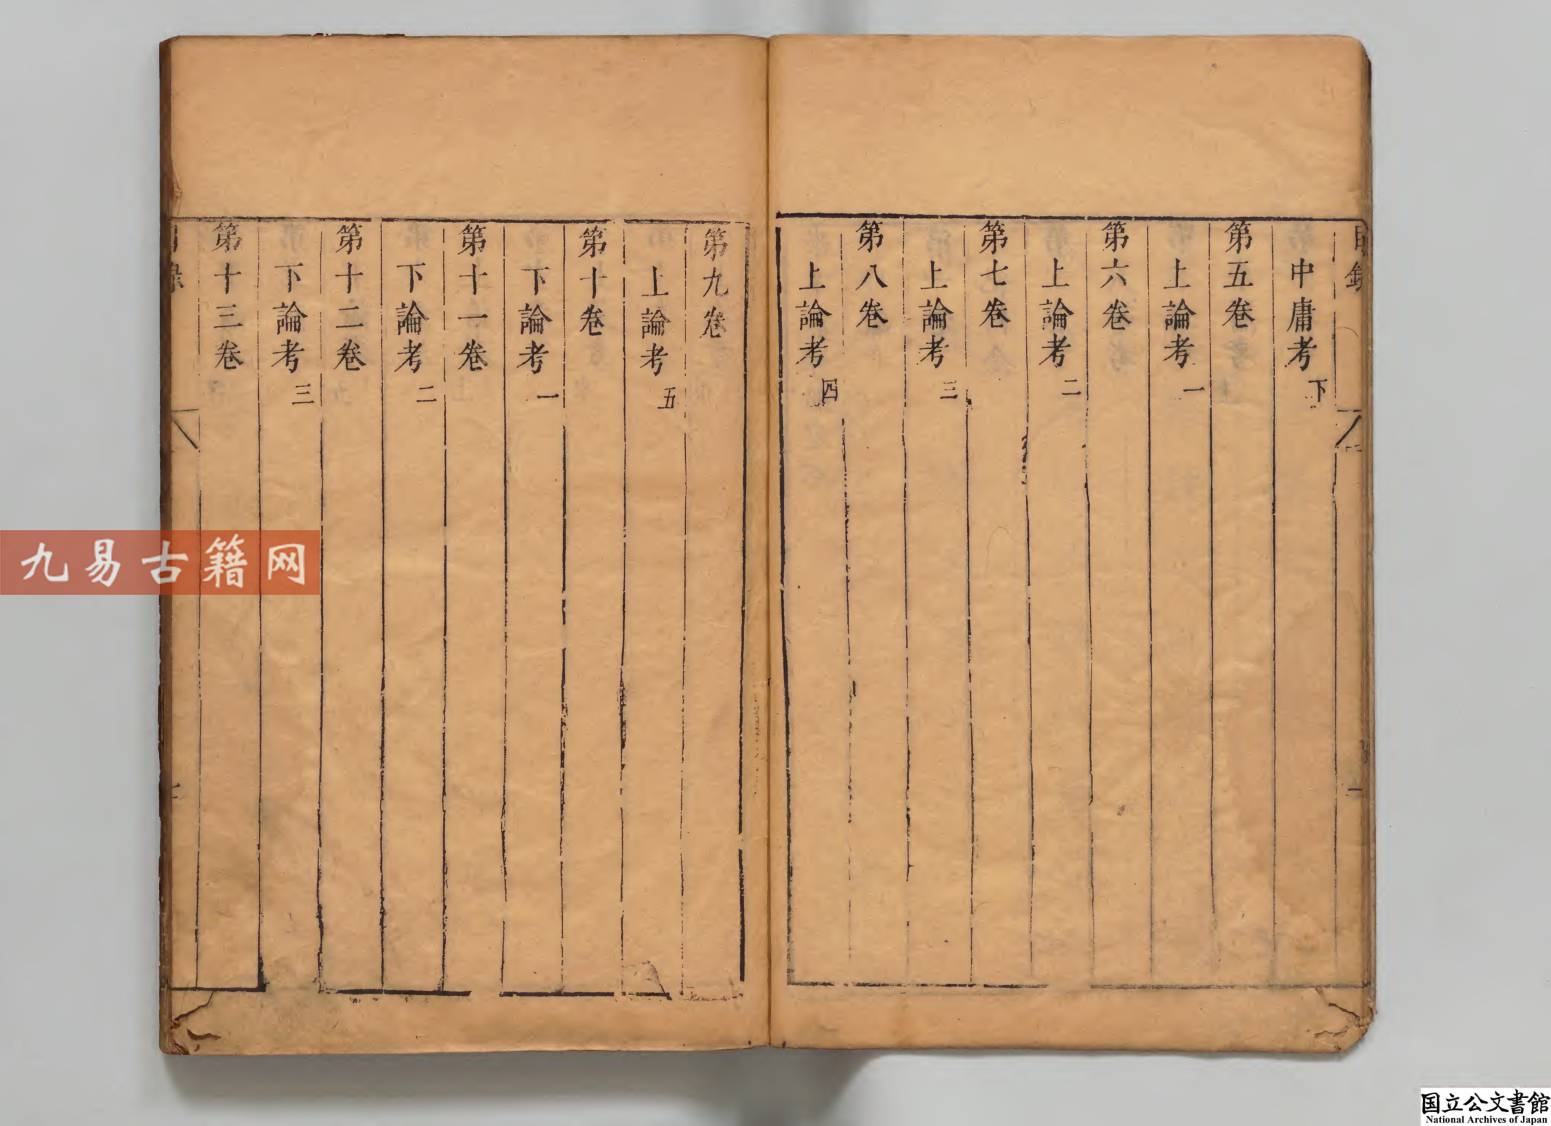 目錄
一
中庸考下
第五卷
上論考一
第六卷
上論考二
第七卷
上論考三
第八卷
上論考四
第九卷
上論考五
第十卷
下論考一
第十一卷
下論考二
第十二卷
下論考三
第十三卷
目錄
九易古籍网
国立公文書館
National Archives of Japan